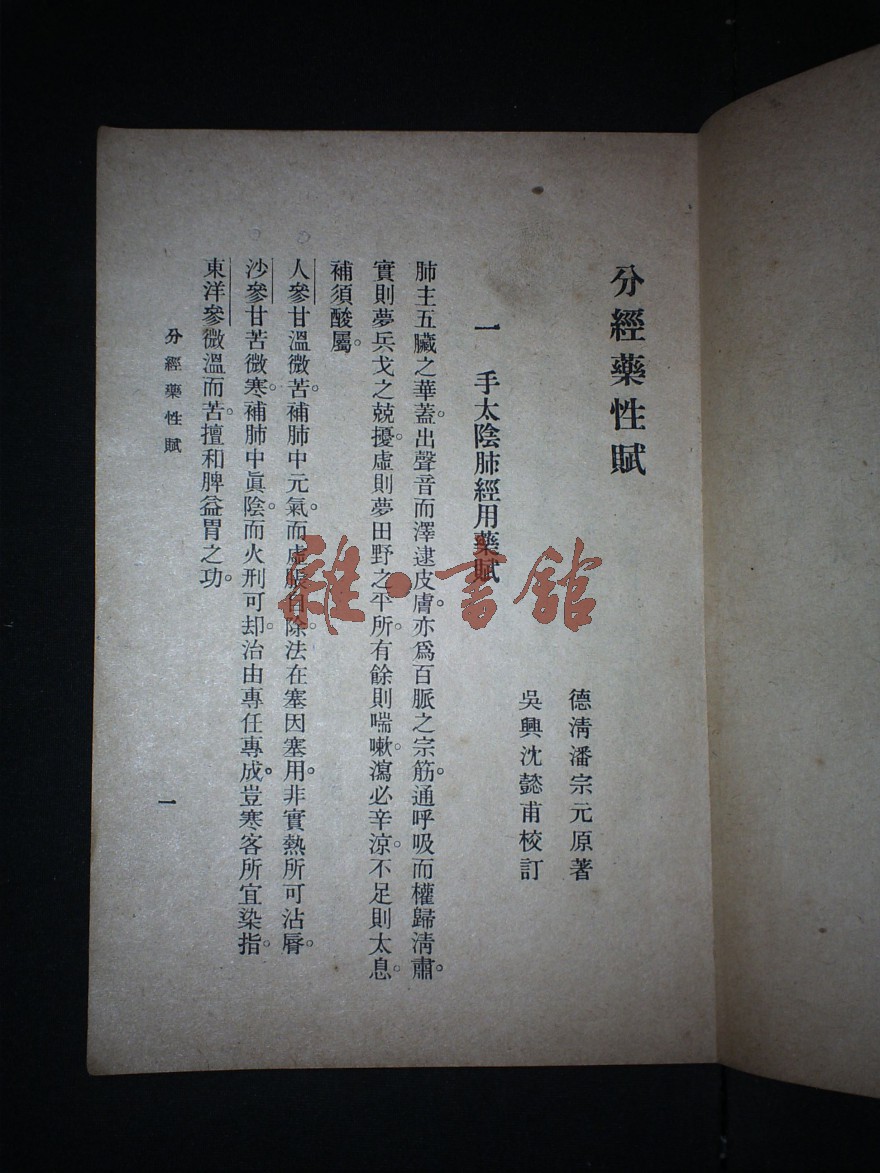 分經藥性賦
德清潘宗元原著
吳興沈懿甫校訂
一　手太陰肺經用藥賦
肺主五臟之華蓋。出聲音而澤逮皮膚。亦為百脈之宗筋。通呼吸而權歸清肅。
實則夢兵戈之兢擾。虛則夢田野之平。所有餘則喘嗽。瀉必辛涼。不足則太息。
補須酸屬。
人參甘溫微苦。補肺中元氣。而虛脹自除。法在塞因塞用。非實熱所可沾脣。
沙參甘苦微寒。補肺中眞陰。而火刑可却。治由專任專成。豈寒客所宜染指。
東洋參微溫而苦。擅和脾益胃之功。
分經藥性賦
一
雜·書館